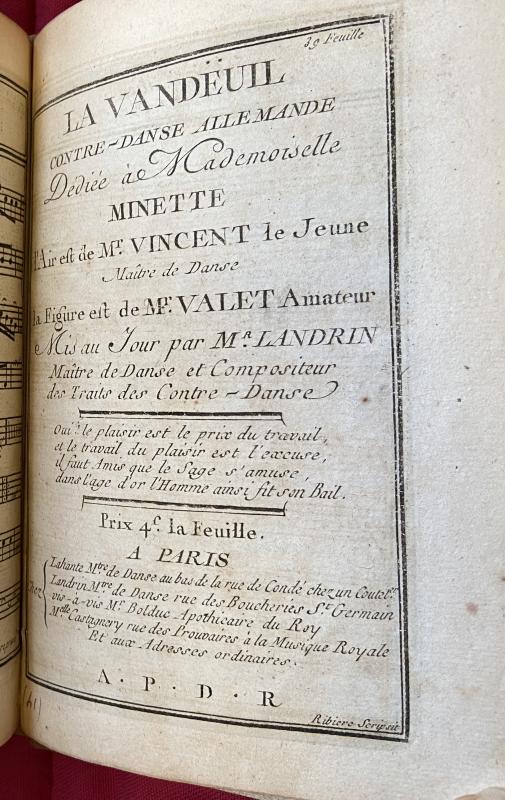 39 Feuille
LA VANDËUIL
CONTRE-DANSE ALLEMANDE
Dediée à Mademoiselle
MINETTE
l'Air est de Mr. VINCENT le Jeune
Maitre de Danse
la Figure est de Mr. VALET Amateur
Mis au Jour par Mr. LANDRIN
Maître de Danse et Compositeur
des Traits des Contre-Danse
Oui! le plaisir est le prix du travail,
et le travail du plaisir est l'excuse,
il faut Amis que le Sage s'amuse,
dans l'age d'or l'Homme ainsi fit son Bail.
Prix 4s. la Feuille.
A PARIS
Chez
Lahante Mtre de Danse au bas de la rue de Condé chez un
Landrin Mtre de Danse rue des Boucheries St. Germain
vis-à-vis Mr. Bolduc Apothicaire du Roy
Melle Castagnery rue des Prouvaires à la Musique Royale
Et aux Adresses ordinaires.
A. P. D. R
Ribiere Scripsit